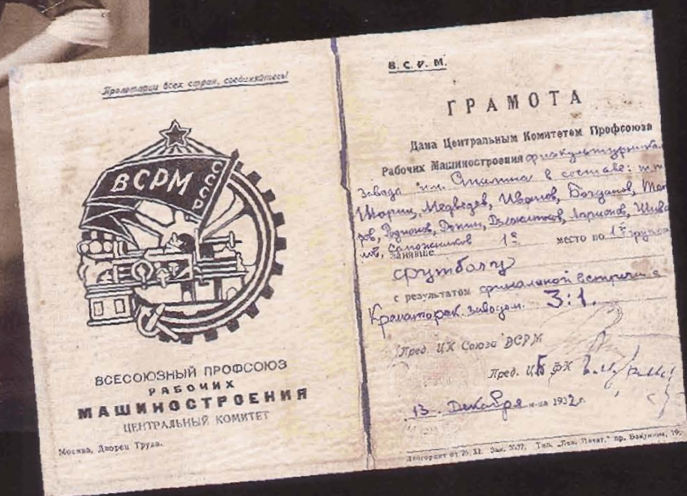 Пролетарии всех стран, соединяйтесь!
ВСРМ
СССР
ВСЕСОЮЗНЫЙ ПРОФСОЮЗ
РАБОЧИХ
МАШИНОСТРОЕНИЯ
ЦЕНТРАЛЬНЫЙ КОМИТЕТ
Москва, Дворец Труда.
В. С. Р. М.
ГРАМОТА
Дана Центральным Комитетом Профсоюза
Рабочих Машиностроения физкультурникам
завода им. Сталина в составе: т.т.
Медведев, Иванов, Богданов,
Родионов, Ларионов,
Сапожников 1е место по 1й группе
занявше
футболу
с результатом финальной встречи с
Краматорск. заводом. 3:1.
Пред. ЦК Союза ВСРМ
Пред. ЦБ ФК
13 Декабря 1932 г.